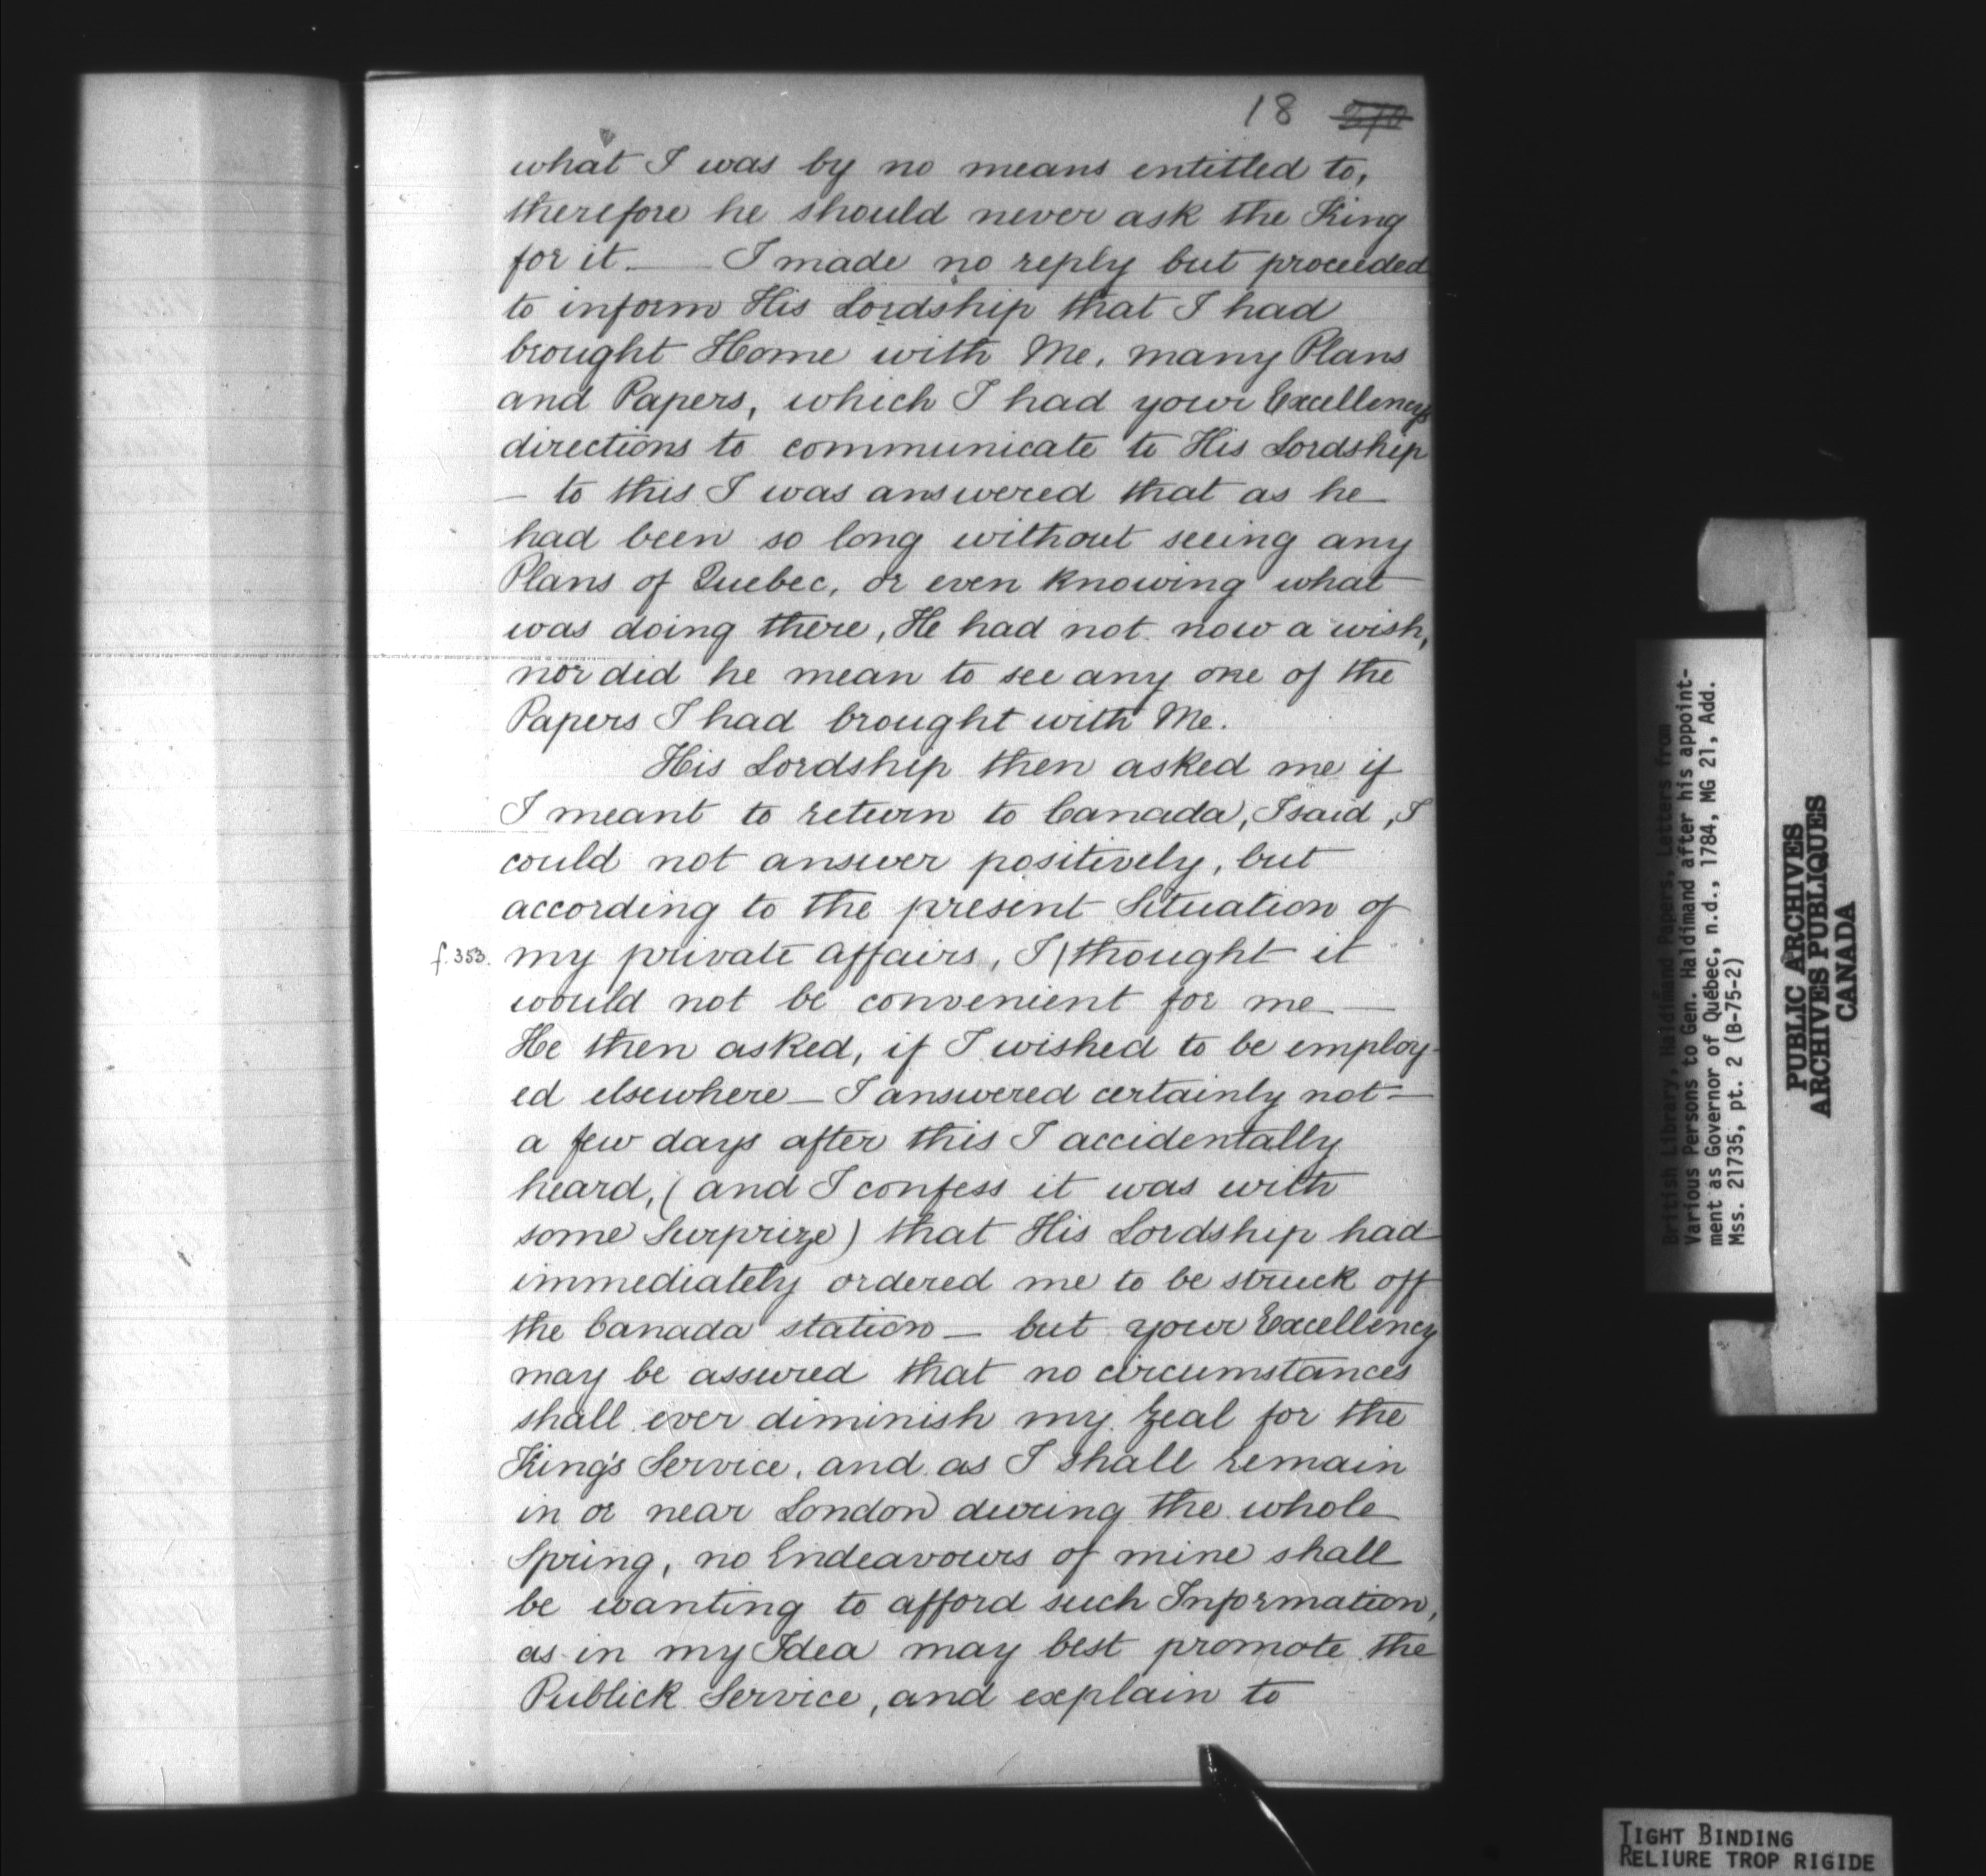 18
what I was by no means entitled to,
therefore he should never ask the King
for it — I made no reply but proceeded
to inform His Lordship that I had
brought Home with Me, many Plans
and Papers, which I had your Excellencys
directions to communicate to His Lordship
— to this I was answered that as he
had been so long without seeing any
Plans of Quebec, or even knowing what
was doing there, He had not now a wish,
nor did he mean to see any one of the
Papers I had brought with Me.
His Lordship then asked me if
I meant to return to Canada, I said, I
could not answer positively, but
according to the present Situation of
f. 353. my private affairs, I | thought it
would not be convenient for me —
He then asked, if I wished to be employ-
ed elsewhere — I answered certainly not —
a few days after this I accidentally
heard, (and I confess it was with
some Surprize) that His Lordship had
immediately ordered me to be struck off
the Canada station — but your Excellency
may be assured that no circumstances
shall ever diminish my Zeal for the
King's Service, and as I shall remain
in or near London during the whole
Spring, no Endeavours of mine shall
be wanting to afford such Information,
as in my Idea may best promote the
Publick Service, and explain to
British Library, Haldimand Papers, Letters from
Various Persons to Gen. Haldimand after his appoint-
ment as Governor of Québec, n.d., 1784, MG 21, Add.
Mss. 21735, pt. 2 (B-75-2)
PUBLIC ARCHIVES
ARCHIVES PUBLIQUES
CANADA
TIGHT BINDING
RELIURE TROP RIGIDE